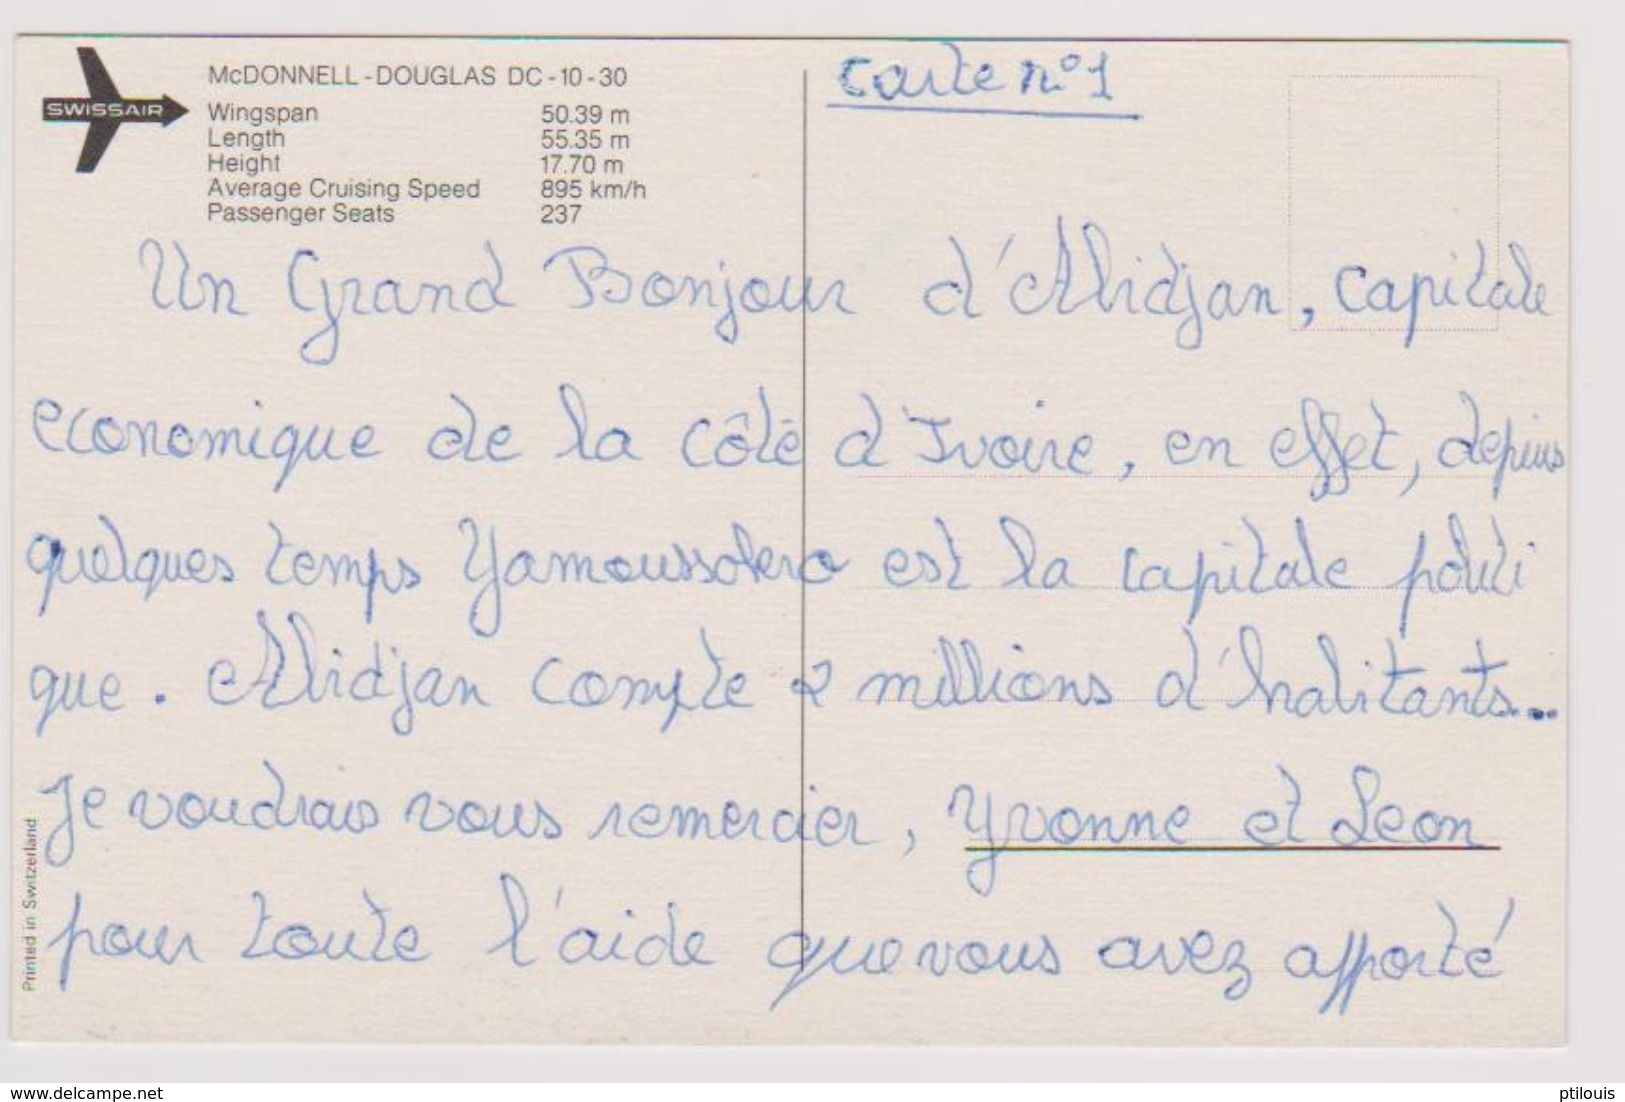 SWISSAIR
McDONNELL-DOUGLAS DC-10-30
Wingspan 50.39 m
Length 55.35 m
Height 17.70 m
Average Cruising Speed 895 km/h
Passenger Seats 237
Carte n°1
Un Grand Bonjour d'Abidjan, capitale
economique de la côte d'Ivoire, en effet, depuis
quelques temps Yamoussokero est la capitale politi
que. Abidjan compte 2 millions d'habitants...
Je voudrais vous remercier, Yvonne et Leon
pour toute l'aide que vous avez apporté
Printed in Switzerland
www.delcampe.net
ptilouis